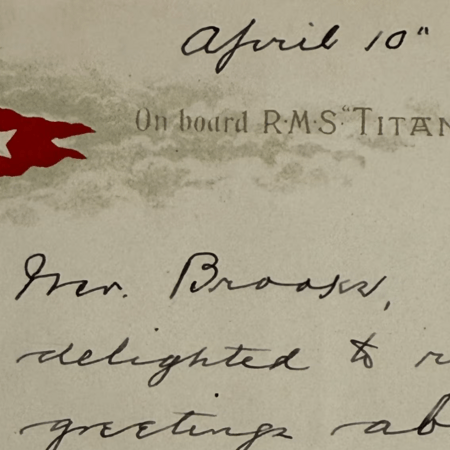 April 10"
On board R·M·S·"TITAN
Mr. Brooks,
delighted to r
greetings ab